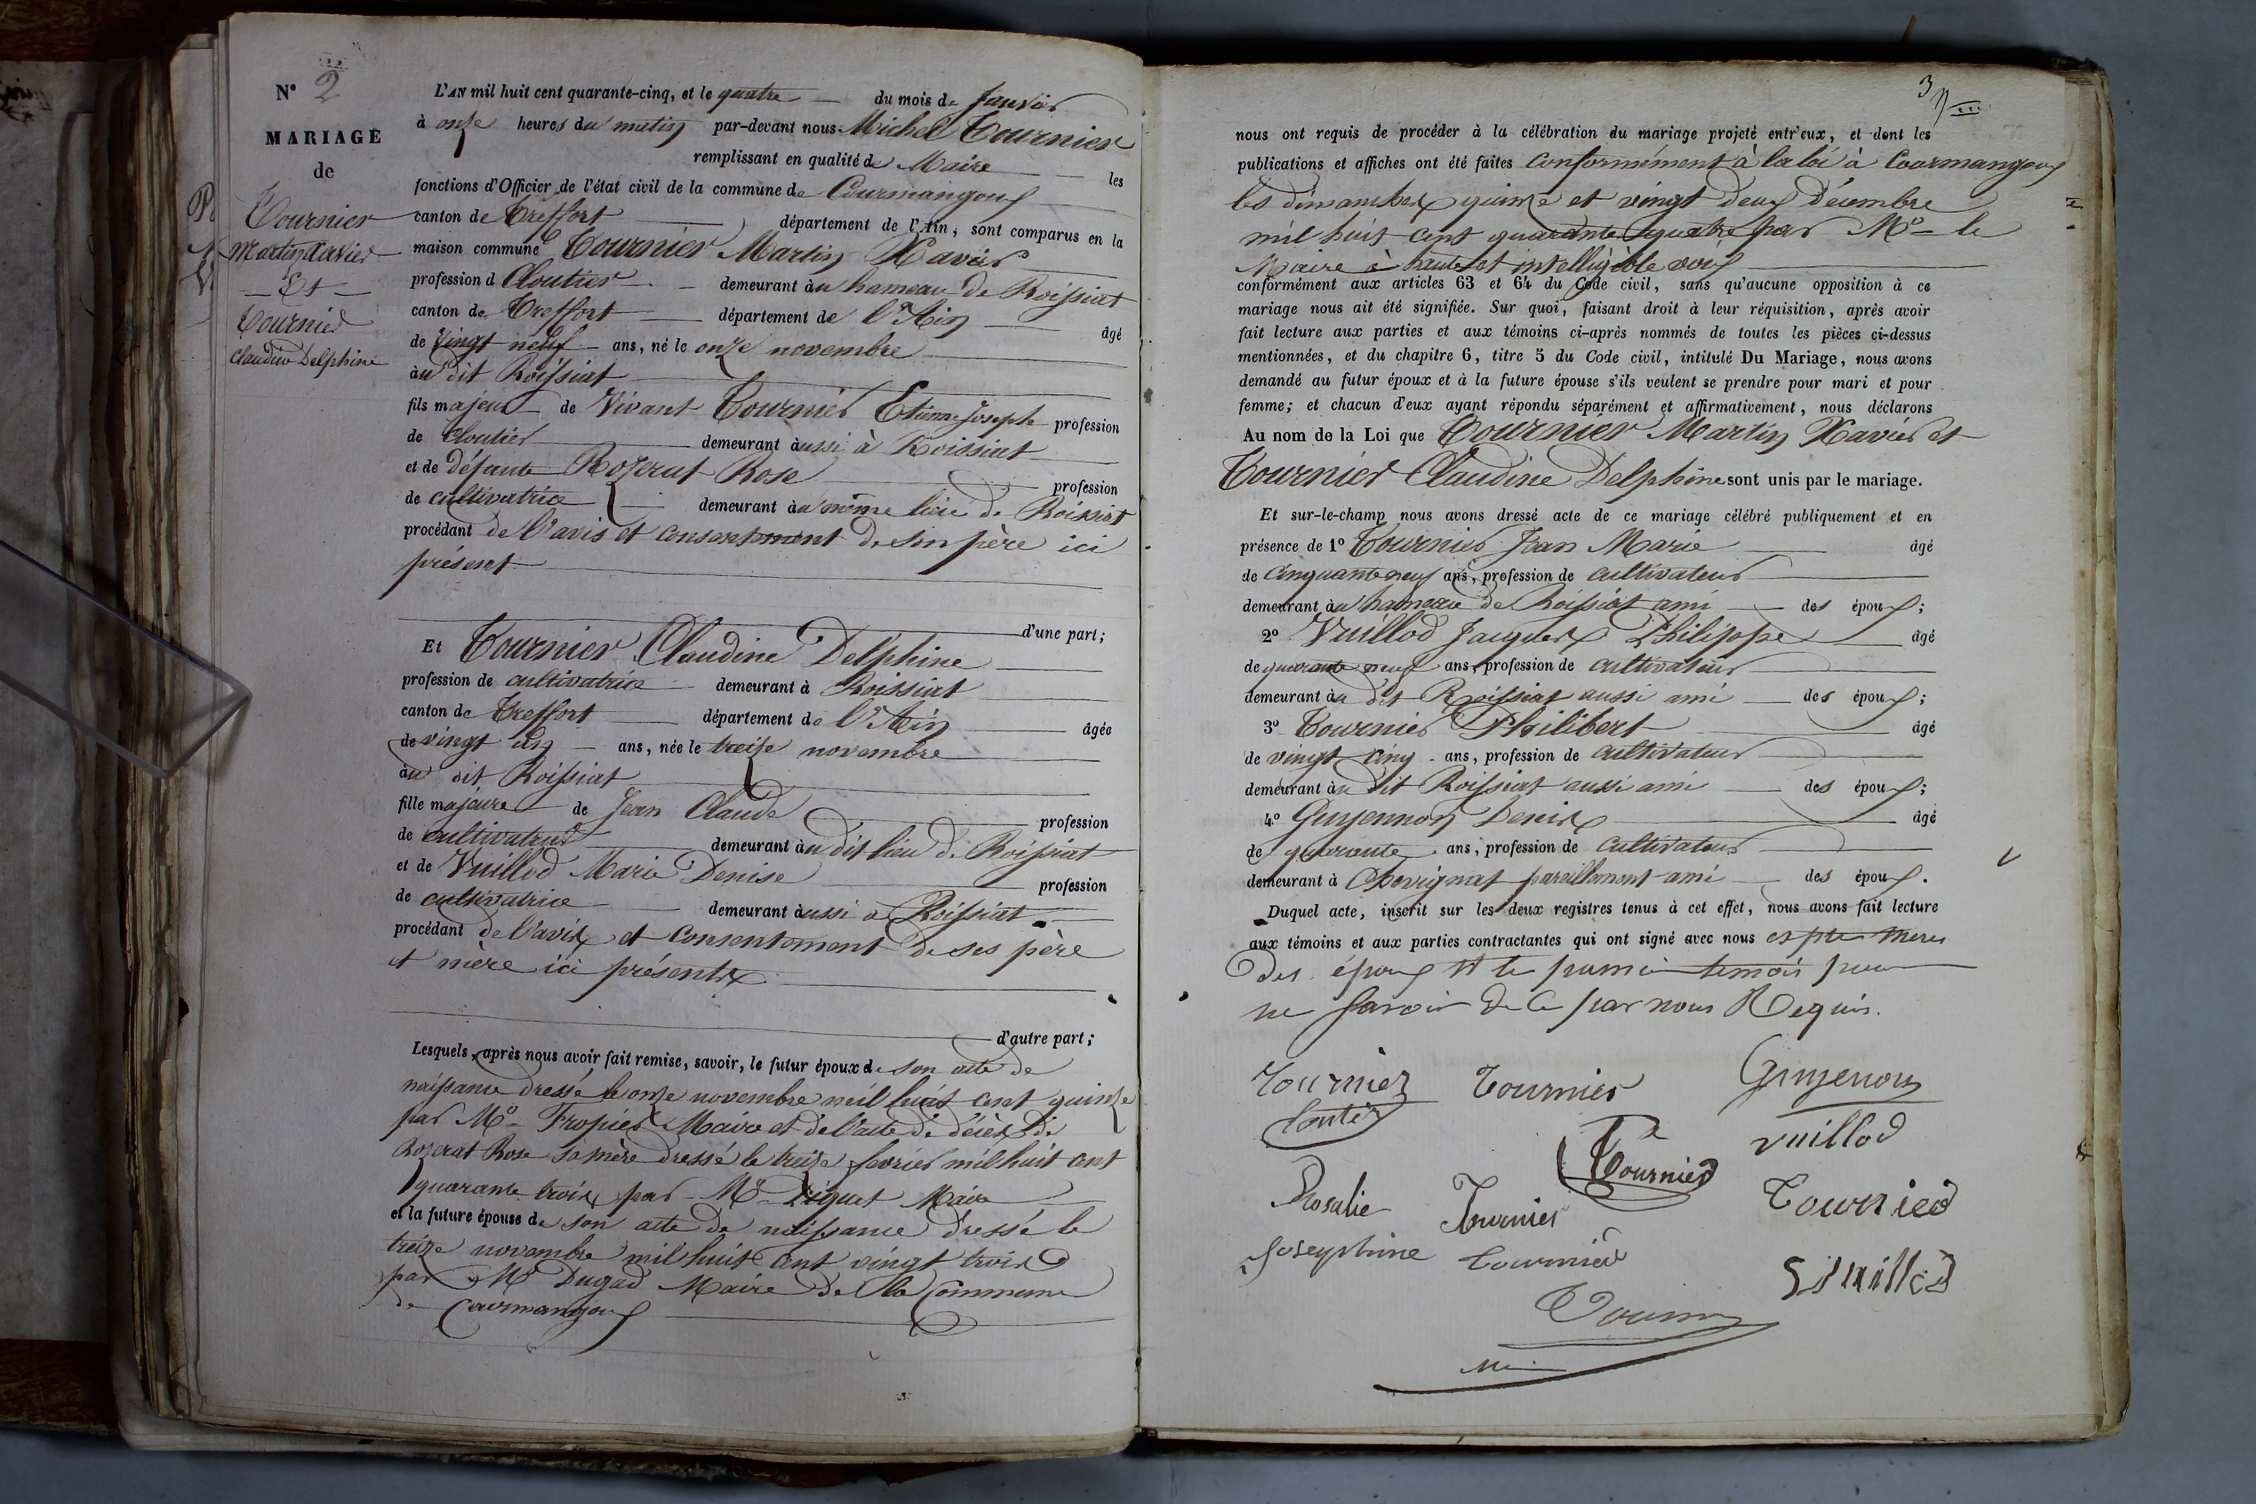 N° 2
MARIAGE
de
Tournier
Martin Xavier
Et
Tournier
Claudine Delphine
L'AN mil huit cent quarante-cinq, et le quatre du mois de Janvier
à onze heures du matin par-devant nous Michel Tournier
remplissant en qualité de Maire les
fonctions d'Officier de l'état civil de la commune de Courmangoux
canton de Treffort département de l'Ain, sont comparus en la
maison commune Tournier Martin Xavier
profession d Cloutier demeurant àu hameau de Roissiat
canton de Treffort département de l'Ain âgé
de vingt neuf ans, né le onze novembre
àu dit Roissiat
fils majeur de Vivant Tournier Etienne Joseph profession
de Cloutier demeurant àussi à Roissiat
et de défunte Rozerat Rose profession
de cultivatrice demeurant àu même lieu de Roissiat
procédant de l'avis et consentement de son père ici
présent
d'une part;
Et Tournier Claudine Delphine
profession de cultivatrice demeurant à Roissiat
canton de Treffort département de l'Ain âgée
de vingt un ans, née le treize novembre
àu dit Roissiat
fille majeure de Jean Claude profession
de cultivateur demeurant àu dit lieu de Roissiat
et de Vuillod Marie Denise profession
de cultivatrice demeurant àussi a Roissiat
procédant de l'avis et consentement de ses père
et mère ici présents
d'autre part;
Lesquels, après nous avoir fait remise, savoir, le futur époux de son acte de
naissance dressé le onze novembre mil huit cent quinze
par Mr Tropier Maire et de l'acte de décès de
Rozerat Rose sa mère dressé le treize fevrier mil huit cent
quarante trois par Mr Piquet Maire
et la future épouse de son acte de naissance dressé le
treize novembre mil huit cent vingt trois
par Mr Dugad Maire de la Commune
de Courmangoux
3
nous ont requis de procéder à la célébration du mariage projeté entr'eux, et dont les
publications et affiches ont été faites conformément à la loi à Courmangoux
les dimanches quinze et vingt deux Décembre
mil huit cent quarante quatre par Mr le
Maire à haute et intelligible voix
conformément aux articles 63 et 64 du Code civil, sans qu'aucune opposition à ce
mariage nous ait été signifiée. Sur quoi, faisant droit à leur réquisition, après avoir
fait lecture aux parties et aux témoins ci-après nommés de toutes les pièces ci-dessus
mentionnées, et du chapitre 6, titre 5 du Code civil, intitulé Du Mariage, nous avons
demandé au futur époux et à la future épouse s'ils veulent se prendre pour mari et pour
femme; et chacun d'eux ayant répondu séparément et affirmativement, nous déclarons
Au nom de la Loi que Tournier Martin Xavier et
Tournier Claudine Delphine sont unis par le mariage.
Et sur-le-champ nous avons dressé acte de ce mariage célébré publiquement et en
présence de 1° Tournier Jean Marie âgé
de Cinquante neuf ans, profession de cultivateur
demeurant àu hameau de Roissiat ami des époux;
2° Vuillod Jacques Philippe âgé
de quarante neuf ans, profession de cultivateur
demeurant àu dit Roissiat aussi ami des époux;
3° Tournier Philibert âgé
de vingt cinq ans, profession de cultivateur
demeurant àu dit Roissiat aussi ami des époux;
4° Guyennon Denis âgé
de quarante ans, profession de Cultivateur
demeurant à Chevignat pareillement ami des époux.
Duquel acte, inscrit sur les deux registres tenus à cet effet, nous avons fait lecture
aux témoins et aux parties contractantes qui ont signé avec nous
des époux et le premier temoin pour
ne savoir de ce par nous Requis.
Tournier Tournier Guyenon
Tournier vuillod
Rosalie Tournier Tournier
Joseyphine Tournier